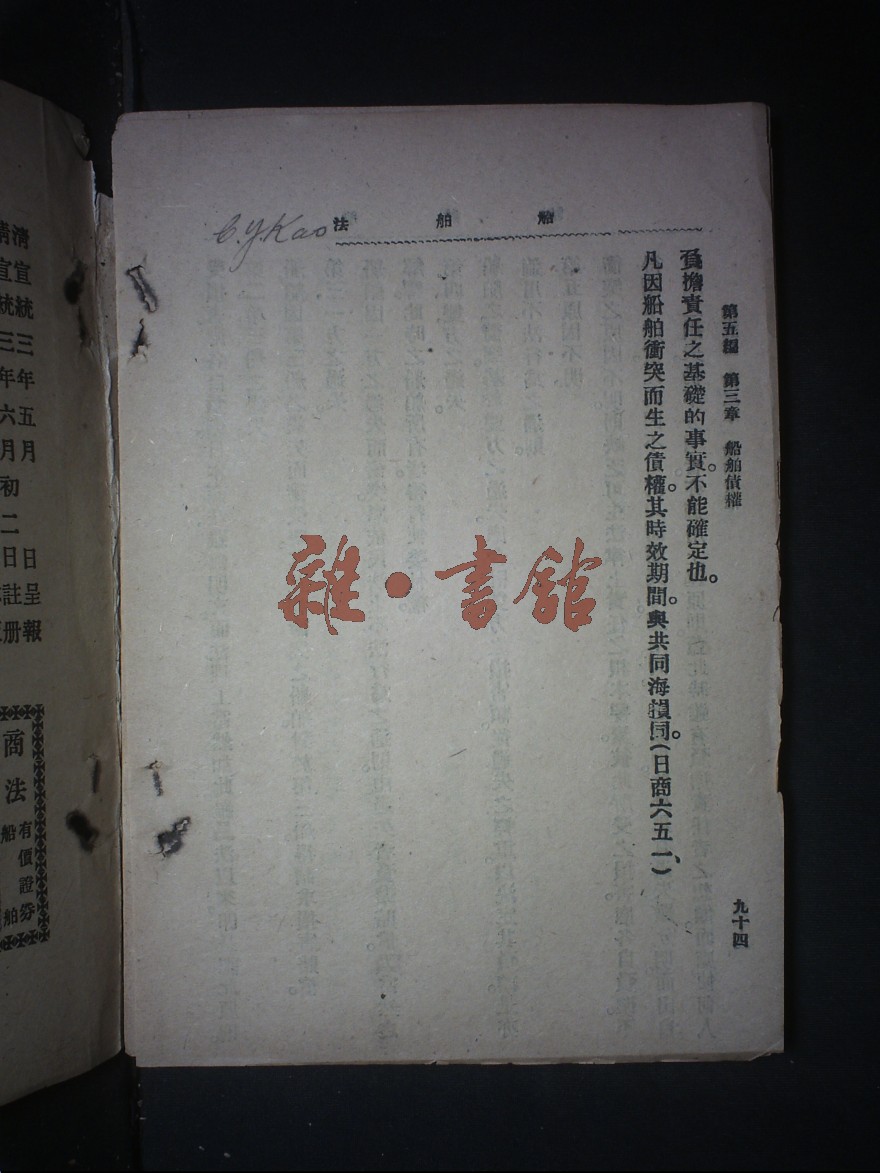 第五編　第三章　船舶債權
九十四
負擔責任之基礎的事實。不能確定也。
凡因船舶衝突而生之債權。其時效期間。與共同海損同。(日商六五一、)
船舶法
C.Y.Kao
雜·書館
清宣統三年五月　日呈報
清宣統三年六月初二日註册
商法
有價證券
船舶